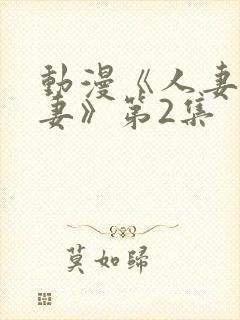 動漫《人妻
妻》第2集
莫如歸